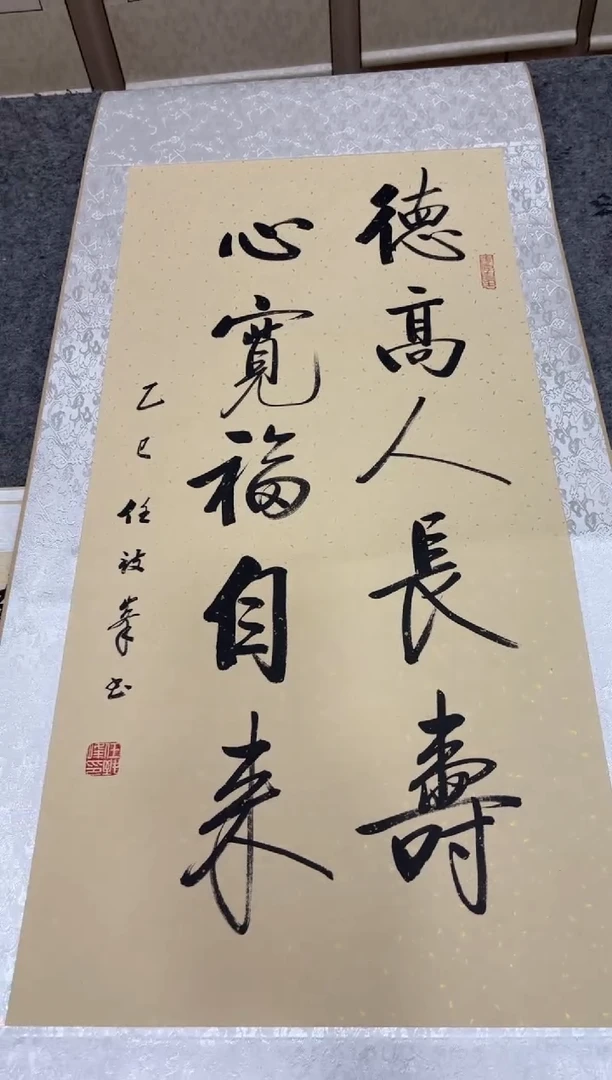 德高人長壽
心寬福自来
乙巳 任 峯书